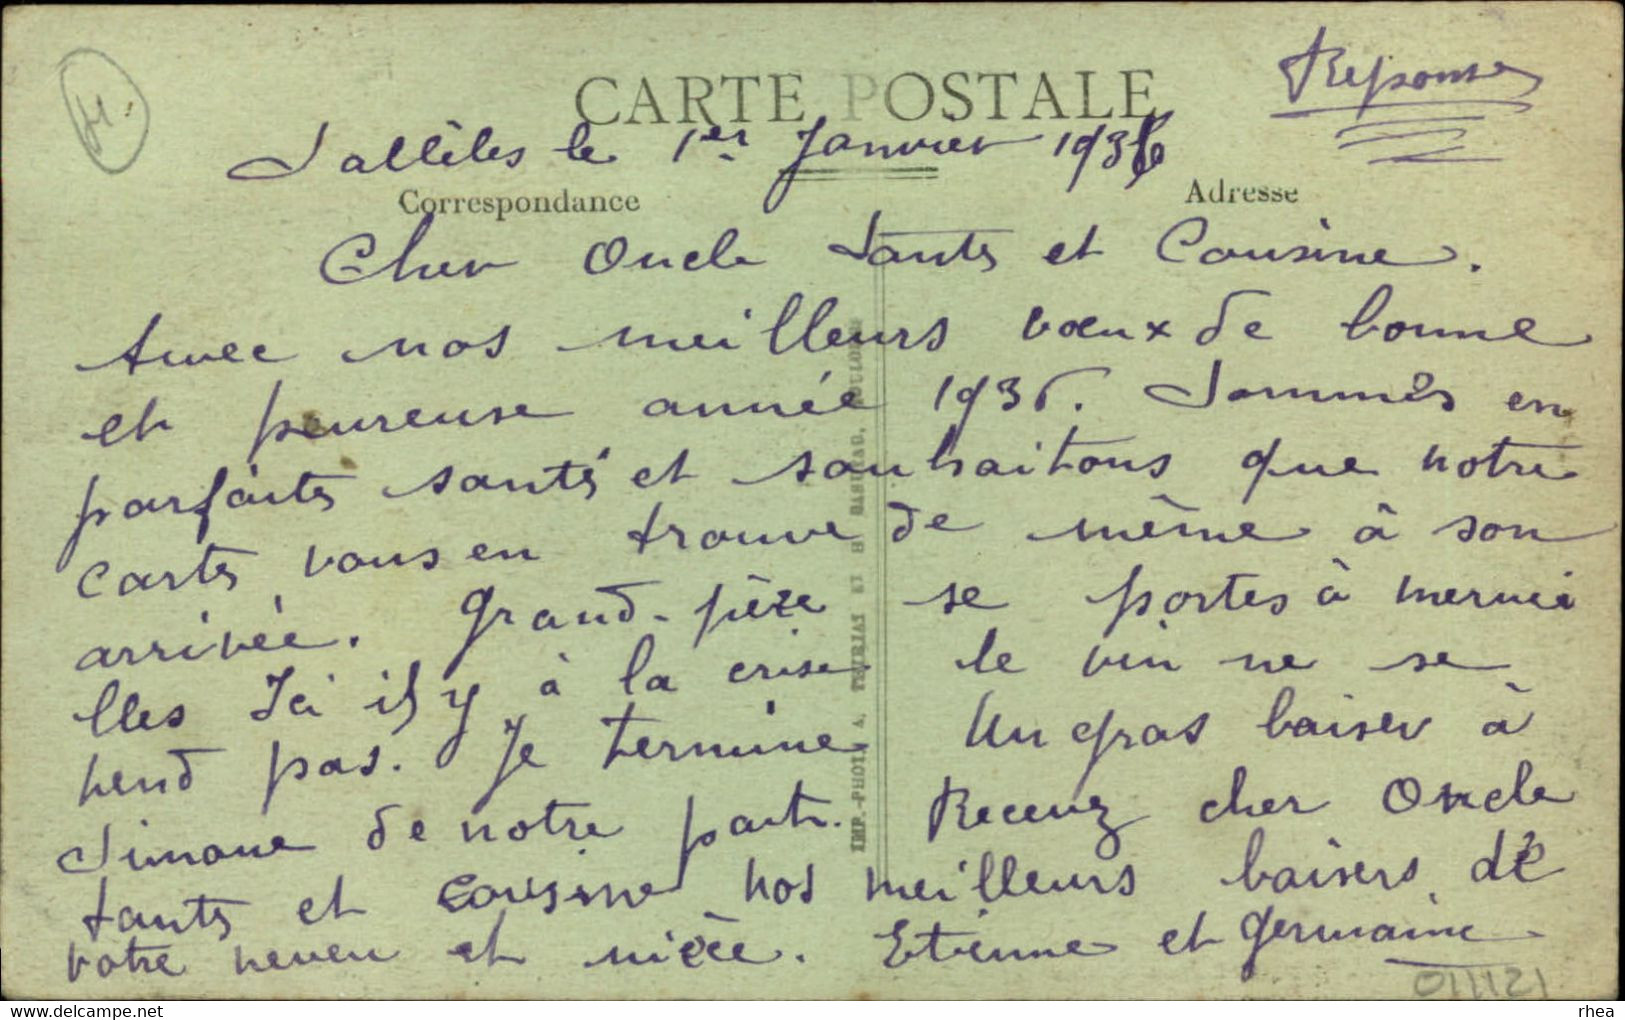 Réponse
CARTE POSTALE
Sallèles le 1er Janvier 1936
Correspondance
Adresse
Cher Oncle Tante et Cousine.
Avec nos meilleurs vœux de bonne
et heureuse année 1936. Sommes en
parfaite santé et souhaitons que notre
carte vous en trouve de même à son
arrivée. Grand-père se portes à mervei
lles Ici il y à la crise le vin ne se
vend pas. Je termine Un gros baiser à
Simone de notre part. Recevez cher Oncle
tante et cousine nos meilleurs baisers de
votre neveu et nièce. Etienne et Germaine
IMP.-PHOT. A. THIRIAT ET B. BASUYAU, TOULOUSE
011121
rhea